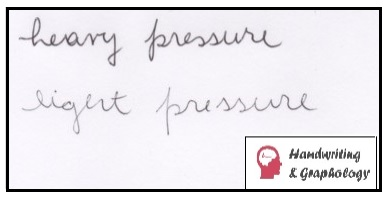 heavy pressure
light pressure
Handwriting
& Graphology